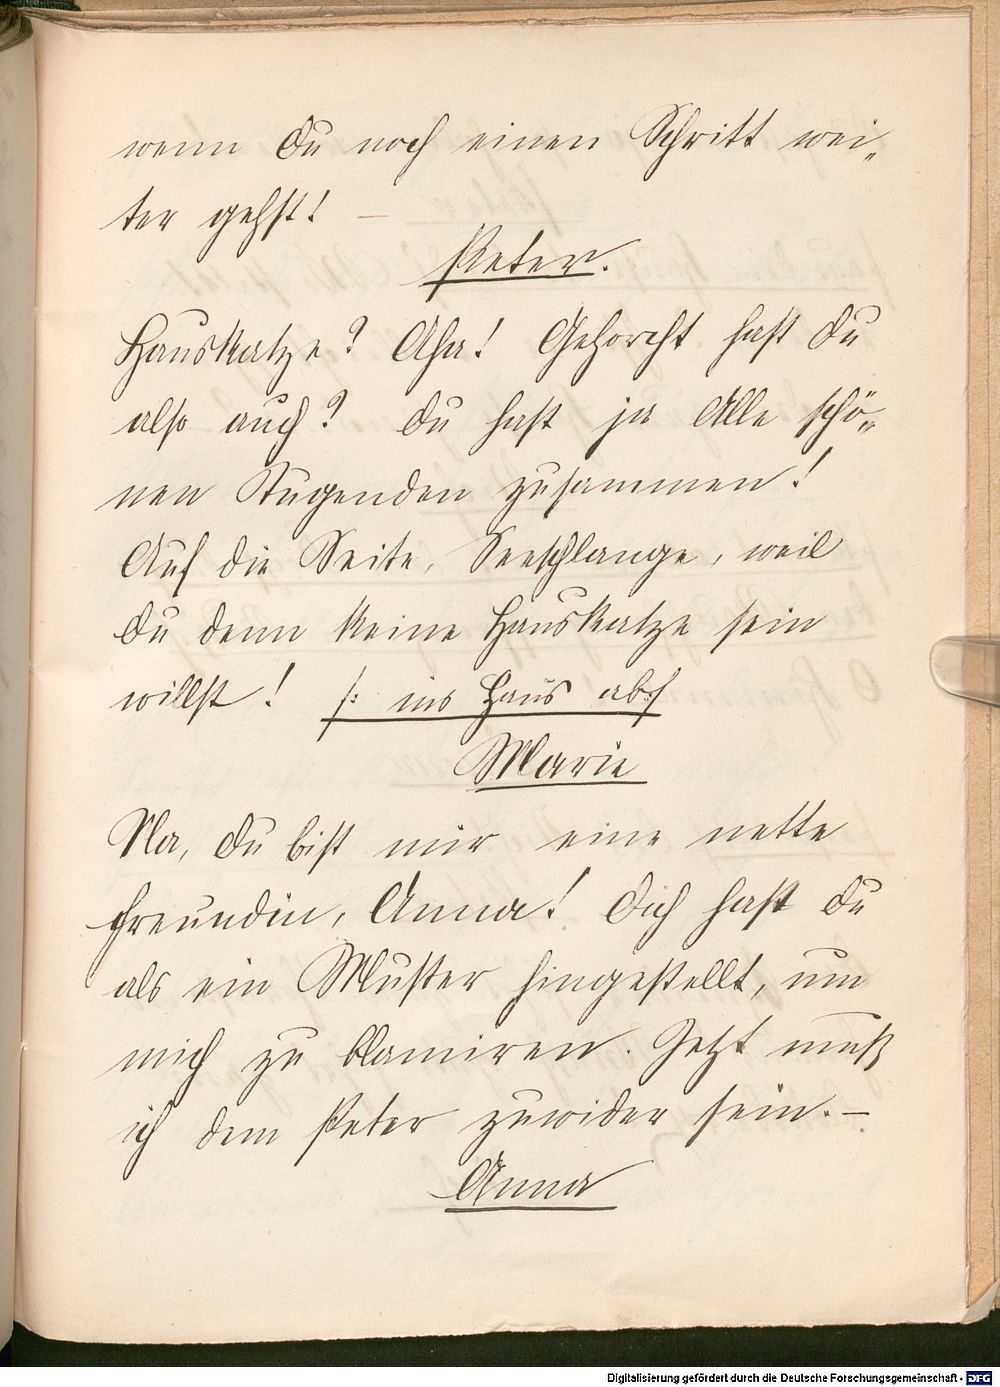 wenn du noch einen Schritt wei„
ter gehst! —
Peter.
Hauskatze? Aha! Gehorcht hast du
also auch? Du hast ja Alle schö„
nen Tugenden zusammen!
Auf die Seite, Seeschlange, weil
du denn keine Hauskatze sein
willst! /: ins Haus ab :/
Marie
Na, du bist mir eine nette
Freundin, Anna! Dich hast du
als ein Muster hingestellt, um
mich zu blamiren. Jetzt muß
ich dem Peter zuwider sein. —
Anna
Digitalisierung gefördert durch die Deutsche Forschungsgemeinschaft - DFG